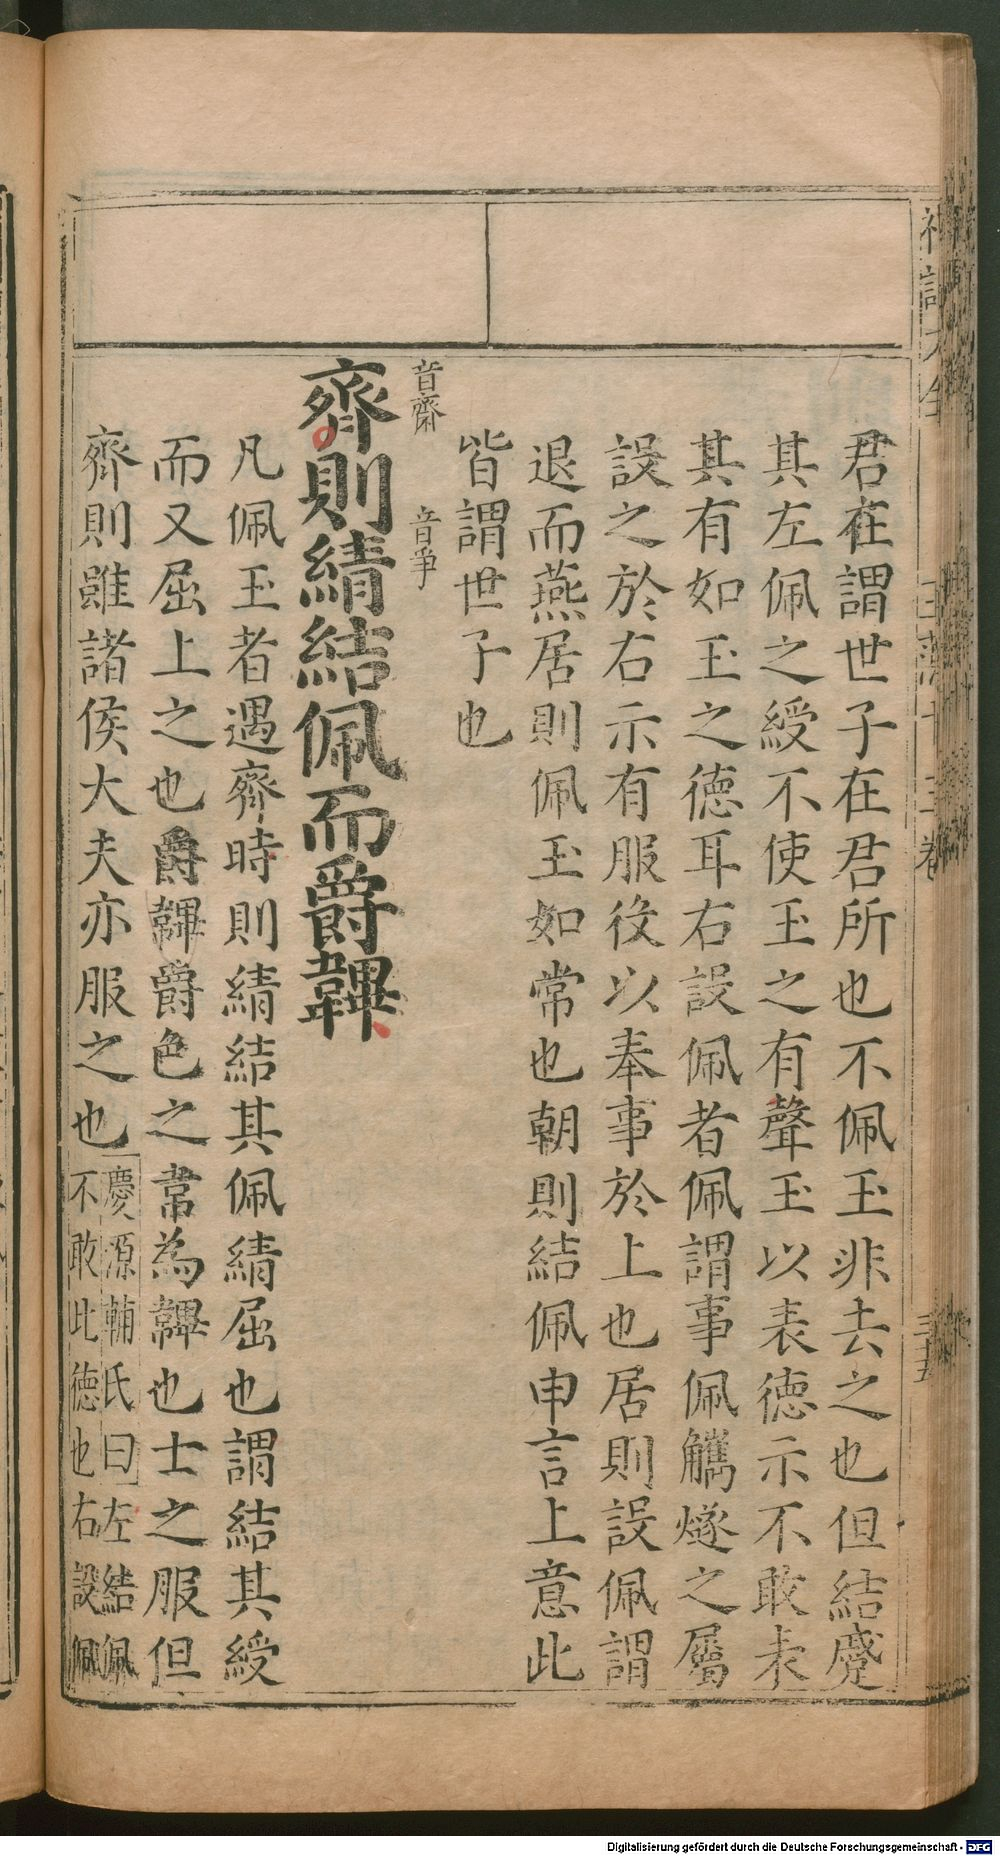 君在謂世子在君所也不佩玉非去之也但結蹙
其左佩之綬不使玉之有聲玉以表德示不敢表
其有如玉之德耳右設佩者佩謂事佩觿燧之屬
設之於右示有服役以奉事於上也居則設佩謂
退而燕居則佩玉如常也朝則結佩申言上意此
皆謂世子也
音齋 音爭
齊則綪結佩而爵韠
凡佩玉者遇齊時則綪結其佩綪屈也謂結其綬
而又屈上之也爵韠爵色之韋為韠也士之服但
齊則雖諸侯大夫亦服之也
慶源輔氏曰左結佩
不敢此德也右設佩
Digitalisierung gefördert durch die Deutsche Forschungsgemeinschaft - DFG